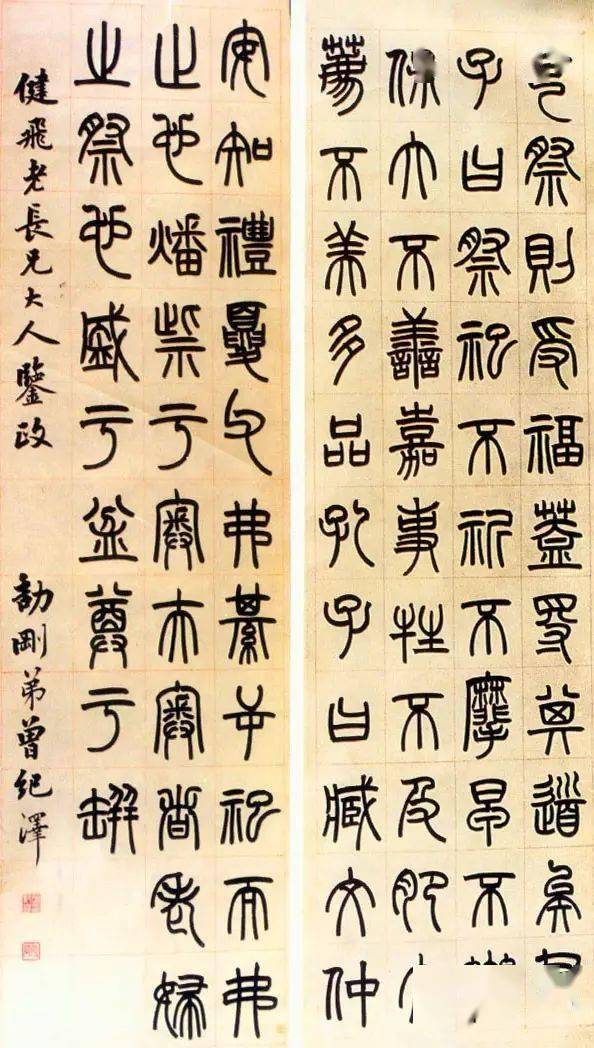 祭則受福蓋得其道矣
子曰祭祀不祈不麾不
保大不善嘉事牲不及肥
薦不美多品孔子曰臧文仲
安知禮夏父弗綦逆祀而弗
止也燔柴于奧夫奧者老婦
之祭也盛于盆尊于缾
健飛老長兄大人鑒政
劼剛弟曾紀澤